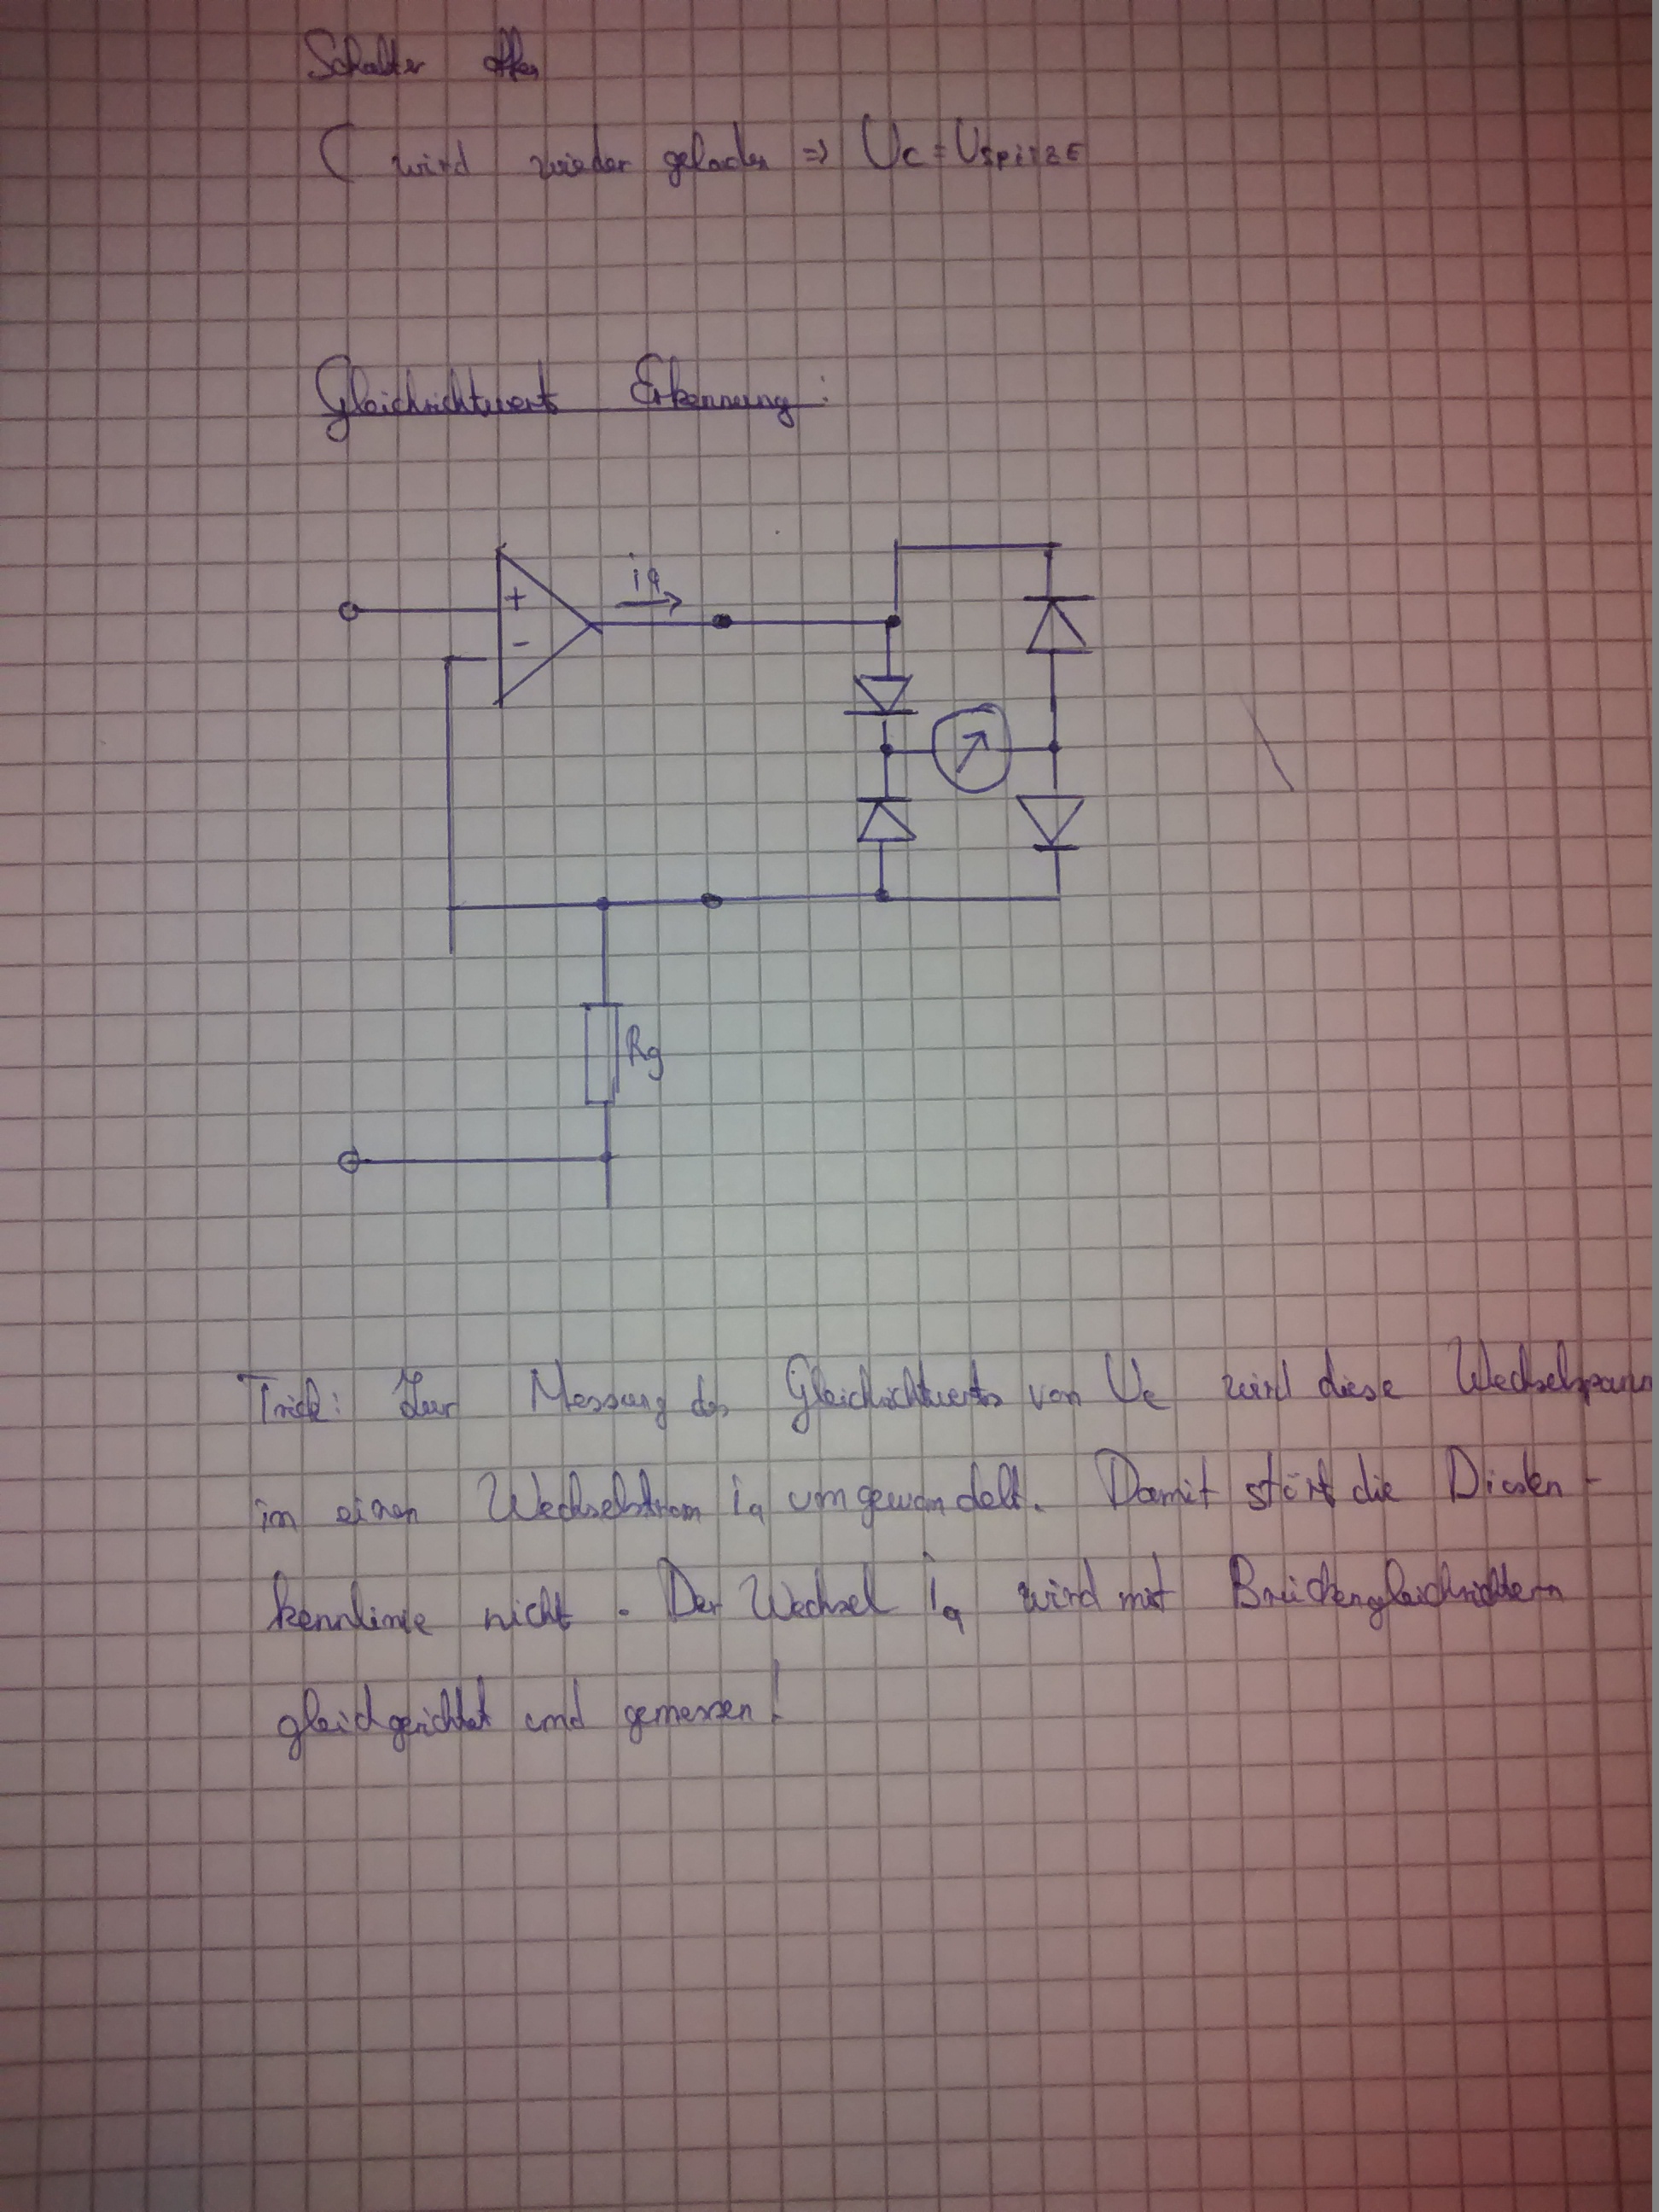 Schalter offen
C wird wieder geladen => Uc = USPITZE
Gleichrichtwert Erkennung:
ia
+
-
Rg
Trick: Zur Messung des Gleichrichtwerts von Ue wird diese Wechselspann
in einen Wechselstrom ia umgewandelt. Damit stört die Dioden-
kennlinie nicht. Der Wechsel ia wird mit Brückengleichrichtern
gleichgerichtet und gemessen!